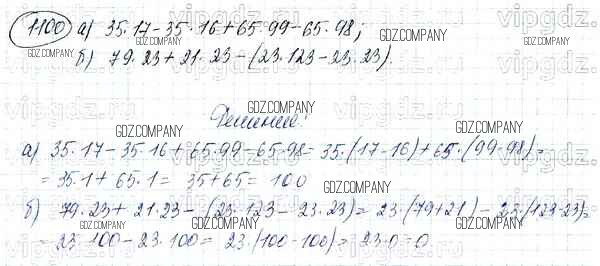 1100 а) 35·17-35·16+65·99-65·98;
б) 79·23+21·23-(23·123-23·23).
Решение:
а) 35·17-35·16+65·99-65·98=35·(17-16)+65·(99-98)=
=35·1+65·1=35+65=100
б) 79·23+21·23-(23·123-23·23)=23·(79+21)-23·(123-23)=
=23·100-23·100=23·(100-100)=23·0=0